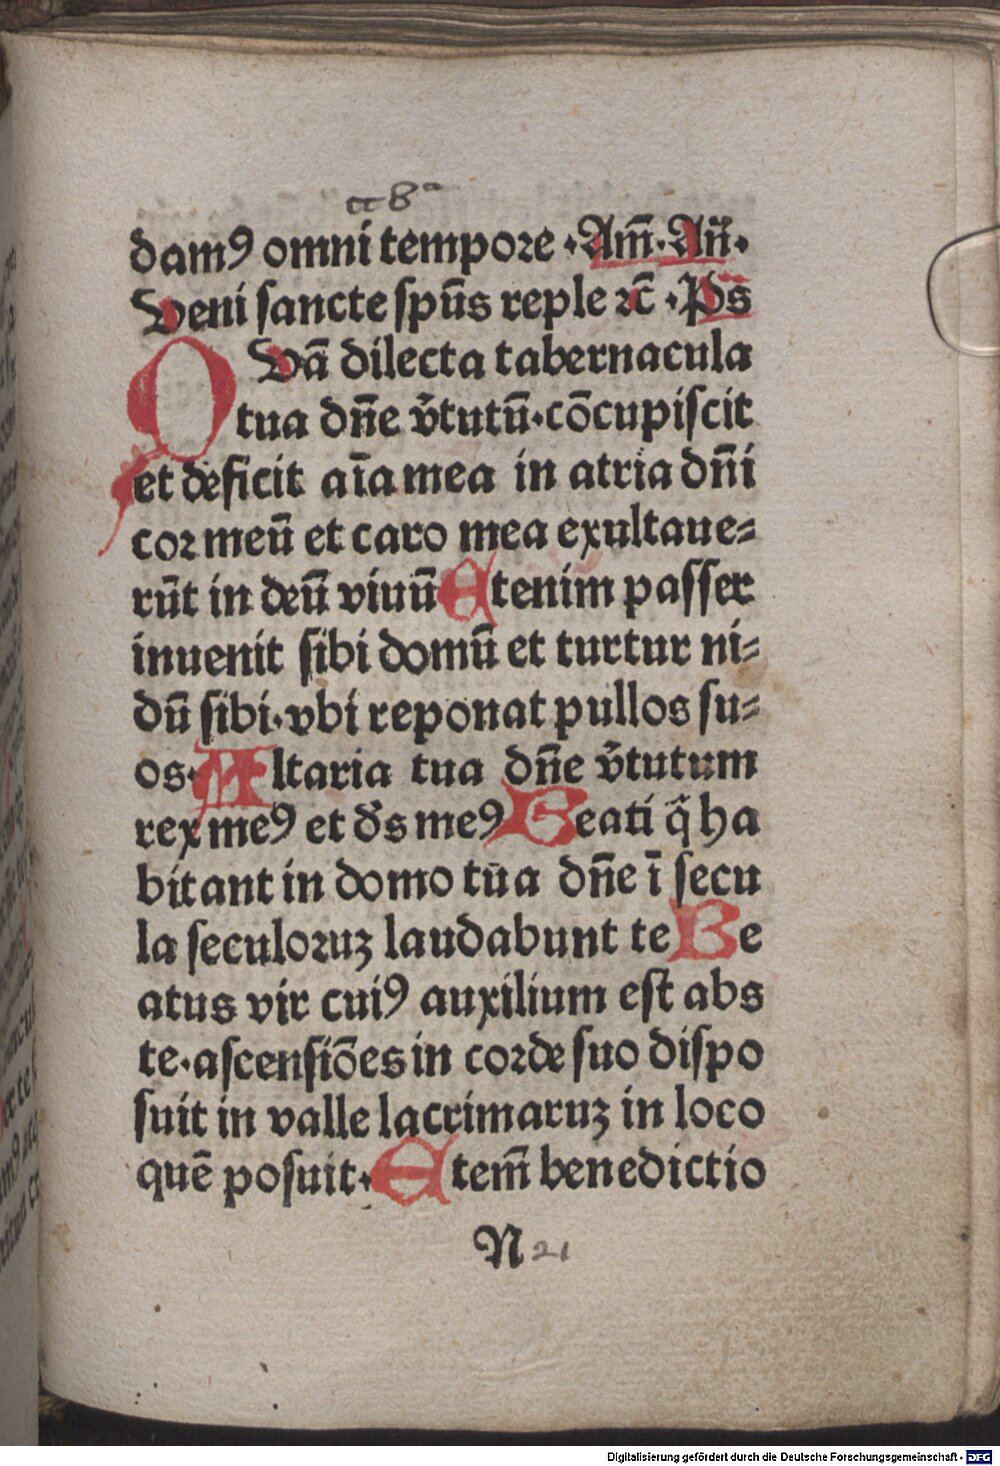 damꝰ omni tempore ·Am̄·An̄·
Veni sancte spūs reple ⁊c̄ ·Ps̄
QVā dilecta tabernacula
tua dn̄e v̄tutū·cōcupiscit
et deficit aīa mea in atria dn̄i
cor meū et caro mea exultaue⸗
rūt in deū viuū Etenim passer
inuenit sibi domū et turtur ni⸗
dū sibi·vbi reponat pullos su⸗
os·Altaria tua dn̄e v̄tutum
rex meꝰ et ds̄ meꝰ Beati q̄ ha
bitant in domo tua dn̄e ī secu
la seculoruꝫ laudabunt te Be
atus vir cuiꝰ auxilium est abs
te·ascensiōes in corde suo dispo
suit in valle lacrimaruꝫ in loco
quē posuit·Etem̄ benedictio
N 21
Digitalisierung gefördert durch die Deutsche Forschungsgemeinschaft - DFG